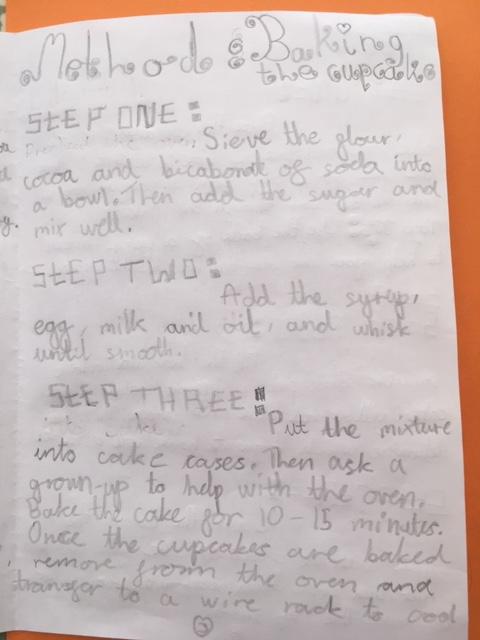 Method: Baking
the cupcake
STEP ONE:
Sieve the flour,
cocoa and bicabonate of soda into
a bowl. Then add the sugar and
mix well.
STEP TWO:
Add the syrup,
egg, milk and oil, and whisk
until smooth.
STEP THREE:
Put the mixture
into cake cases. Then ask a
grown-up to help with the oven.
Bake the cake for 10-15 minutes.
Once the cupcakes are baked
, remove from the oven and
transfer to a wire rack to cool